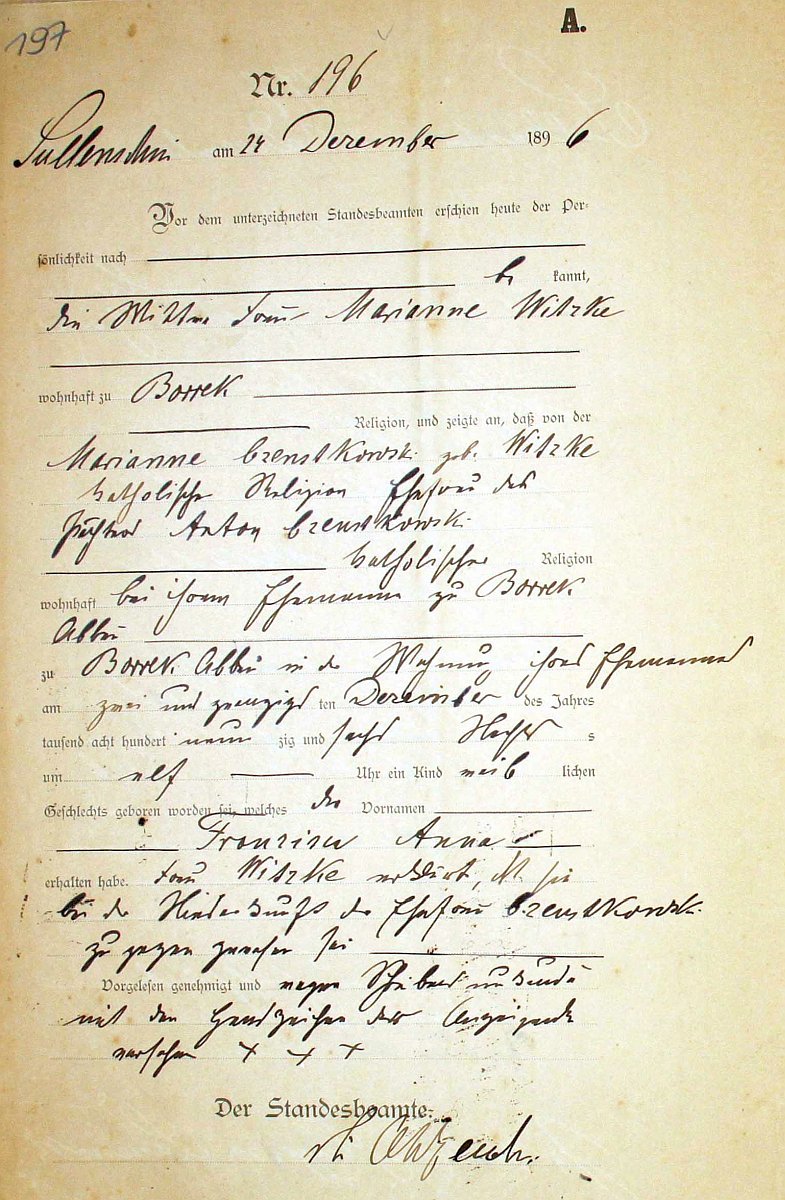 197
A.
Nr. 196
Sullenschin am 24 Dezember 1896
Vor dem unterzeichneten Standesbeamten erschien heute der Per-
sönlichkeit nach
be kannt,
die Wittwe Frau Marianne Witzke
wohnhaft zu Borrek
Religion, und zeigte an, daß von der
Marianne Czenstkowski geb. Witzke
katholischer Religion Ehefrau des
Pächters Anton Czenstkowski
katholischer Religion
wohnhaft bei ihrem Ehemanne zu Borrek
Abbau
zu Borrek Abbau in der Wohnung ihres Ehemannes
am zwei und zwanzigs ten Dezember des Jahres
tausend acht hundert neun zig und sechs s
um elf Uhr ein Kind weib lichen
Geschlechts geboren worden sei, welches die Vornamen
Anna
erhalten habe. Frau Witzke erklärt, daß sie
bei der Niederkunft der Ehefrau Czenstkowski
zugegen gewesen sei
Vorgelesen genehmigt und wegen Schreibensunkunde
mit den Handzeichen der Anzeigende
versehen + + +
Der Standesbeamte.